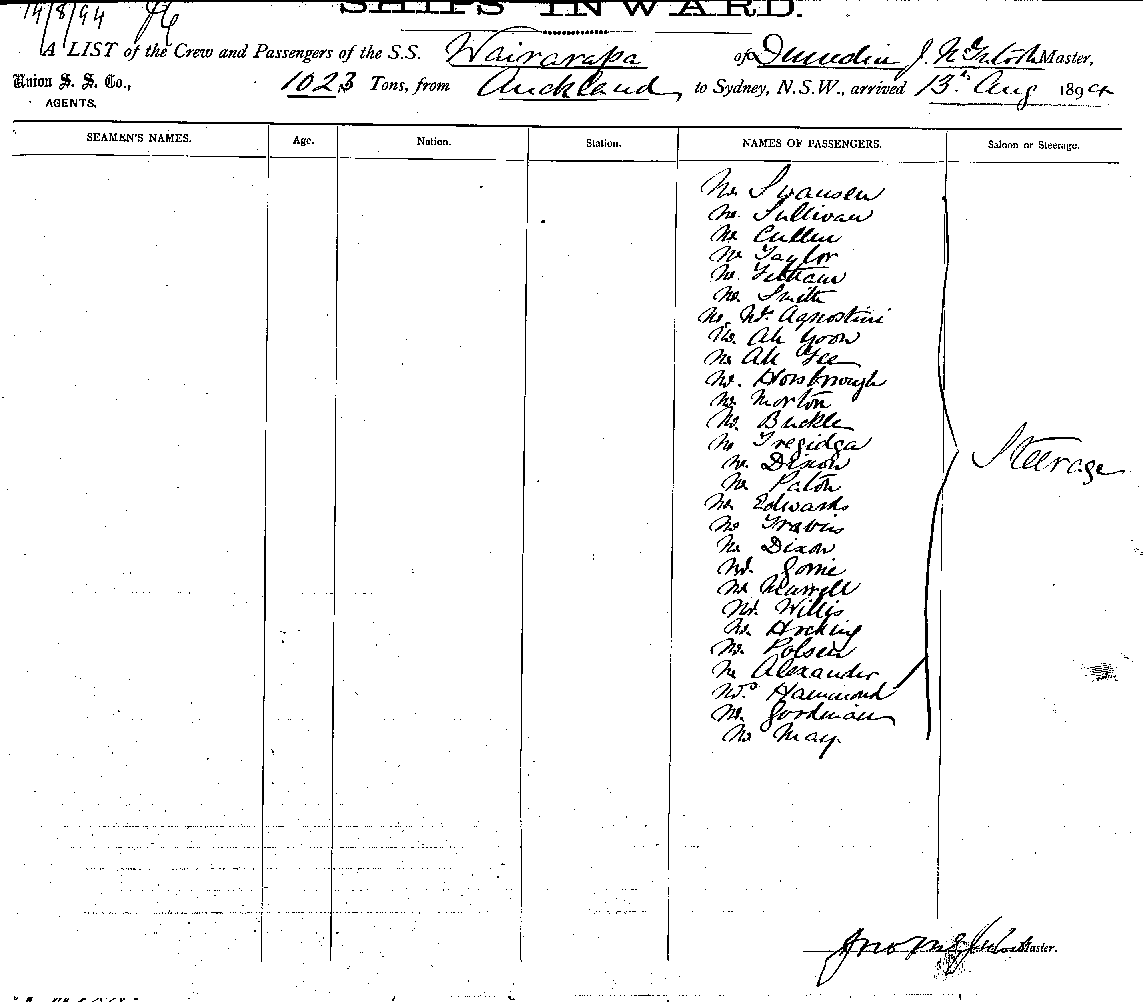 14/8/94
SHIPS INWARD.
A LIST of the Crew and Passengers of the S.S. Wairarapa of Dunedin J. McIntosh Master,
Union S. S. Co., 1023 Tons, from Auckland, to Sydney, N.S.W., arrived 13th Aug 1894
AGENTS.
SEAMEN'S NAMES. Age. Nation. Station. NAMES OF PASSENGERS. Saloon or Steerage.
Mr Swansen
Mr. Sullivan
Mr Cullen
Mr Taylor
Mr.
Mr. Smith
Mr. Mrs. Agnostini
Mr. Ah Yoon
Mr Ah Gee
Mr. Horsbrough
Mr. Morton
Mr. Buckle
Mr Tregidga
Mr. Dixon Steerage
Mr Paton
Mr Edwards
Mr Travis
Mr. Dixon
Mr. Gorrie
Mr
Mr. Willis
Mr. Hocking
Mr. Polsen
Mr Alexander
Mrs Hammond
Mr. Goodman
Mr May
Jno McIntosh Master.